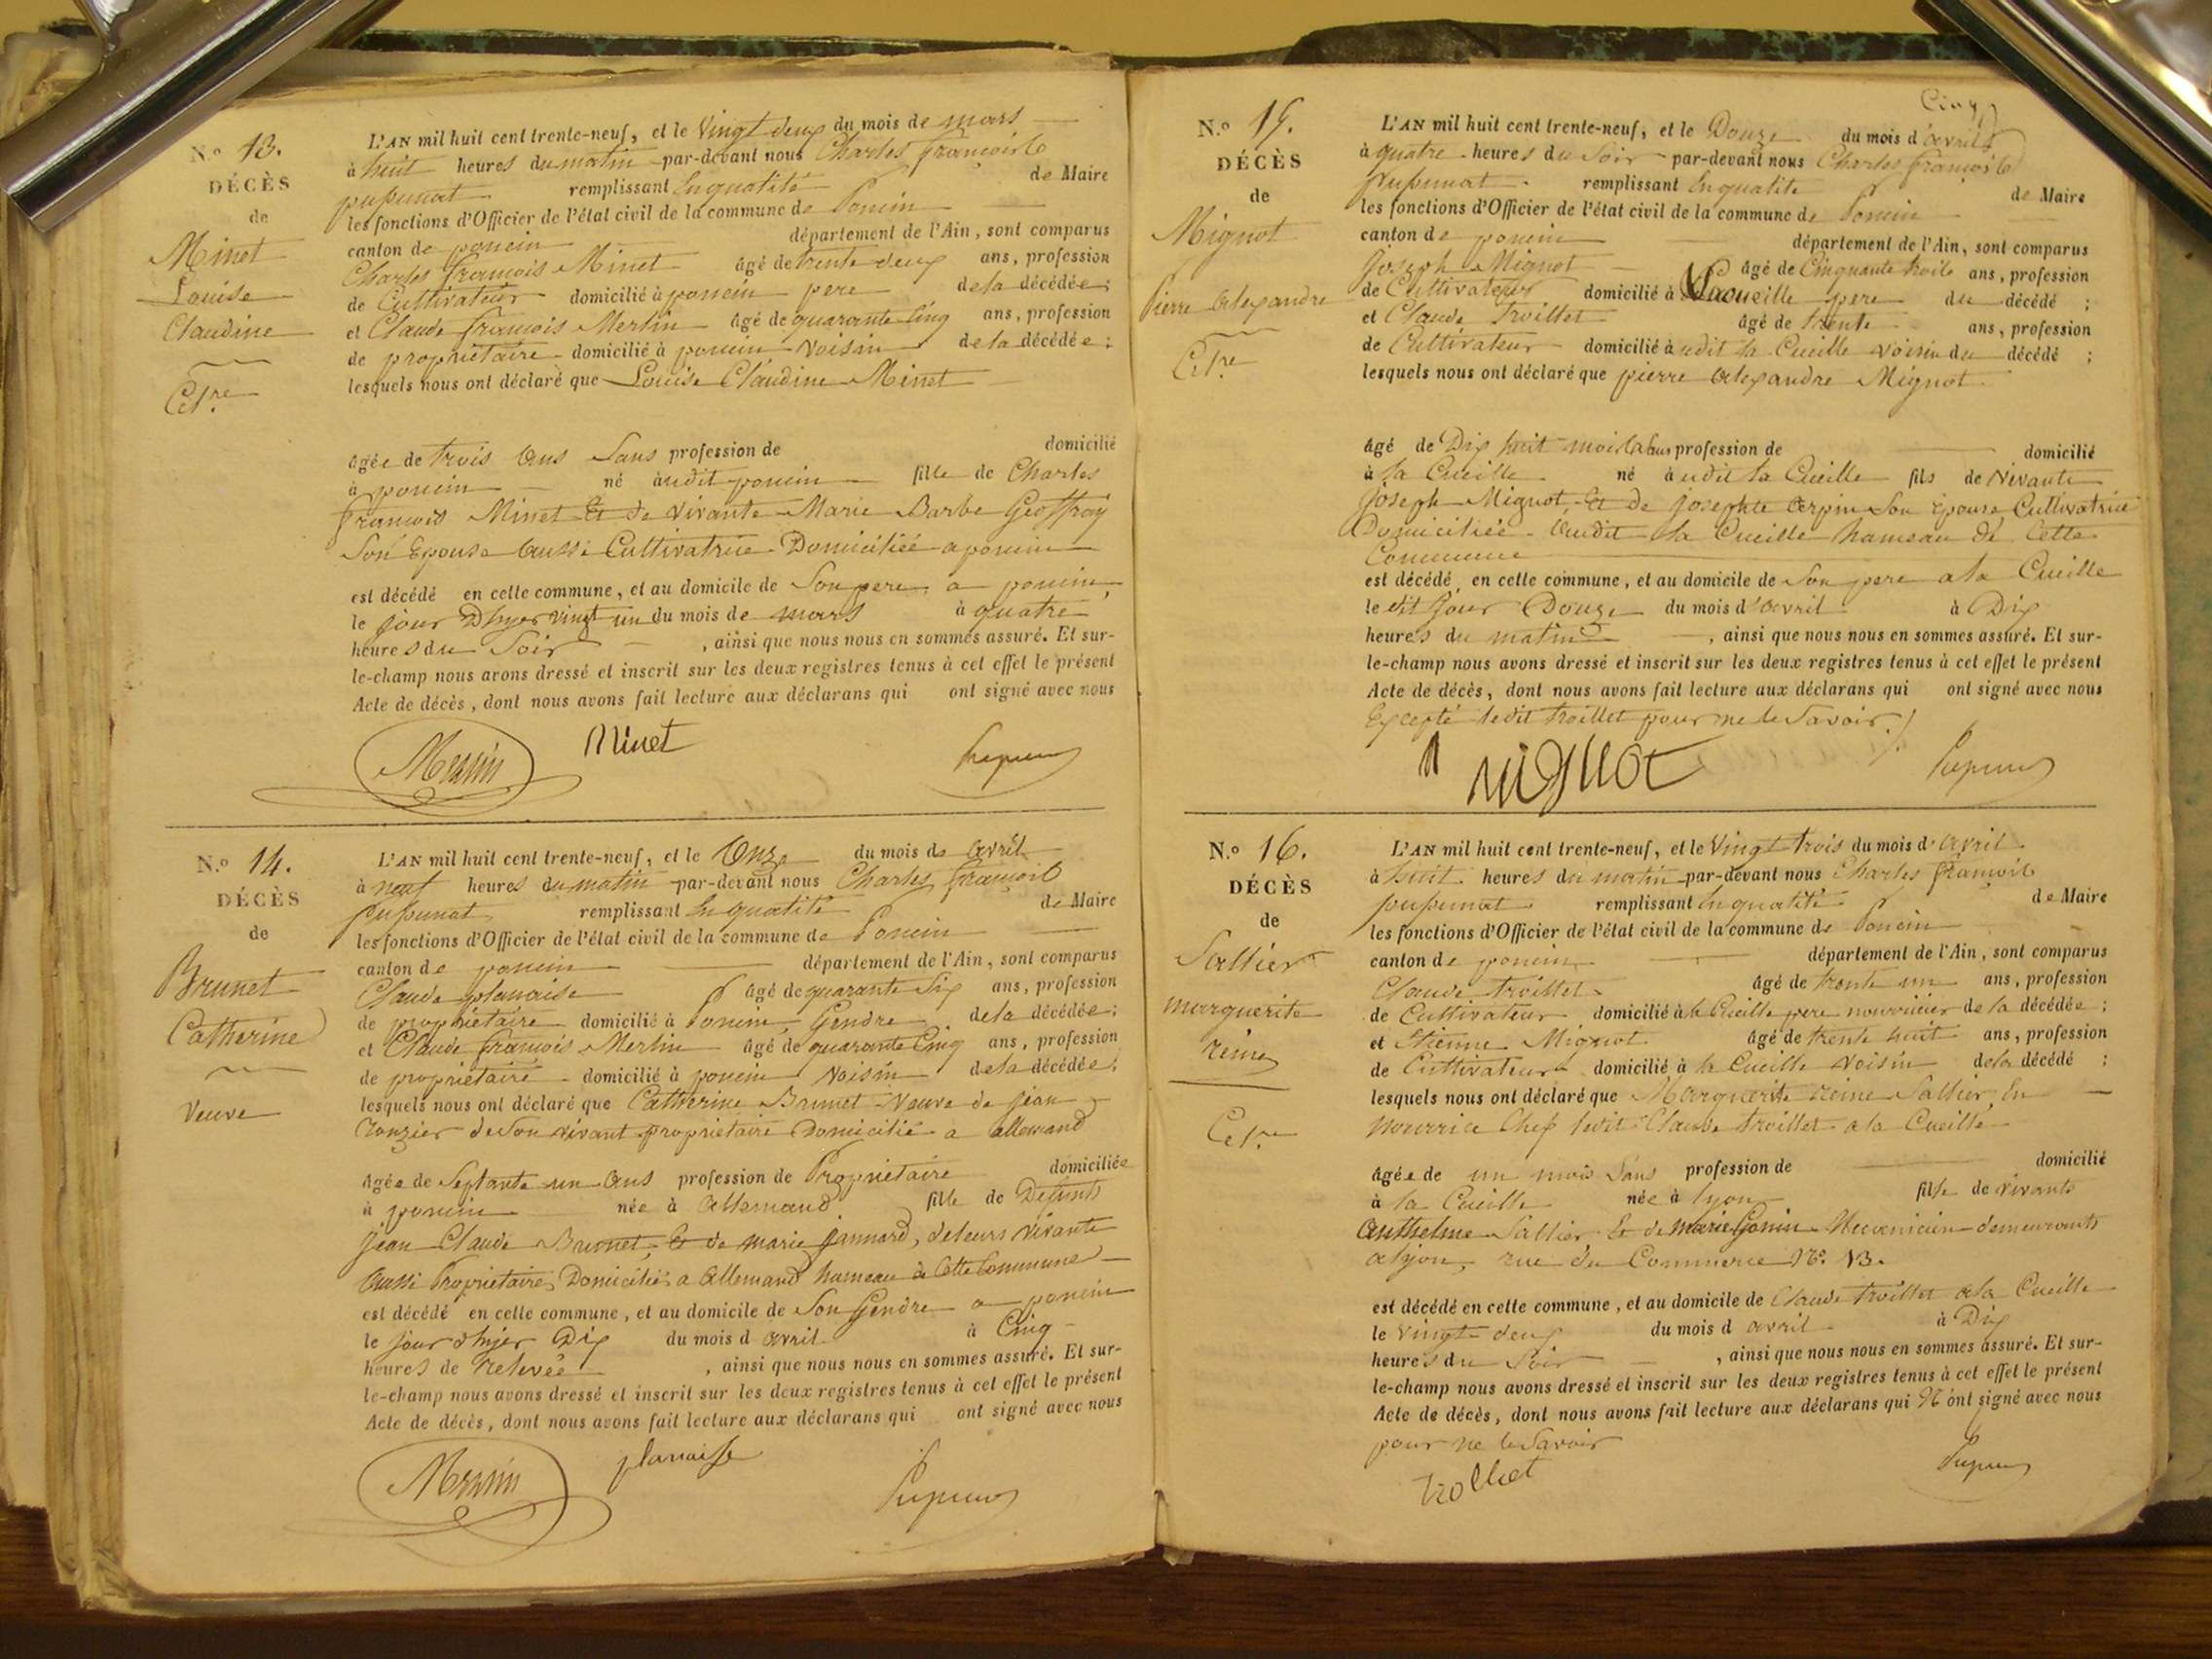 N.º 13.
DÉCÈS
de
Minet
Louise
Claudine
Cel.re
L'AN mil huit cent trente-neuf, et le Vingt deux du mois de mars
à huit heures du matin par-devant nous Charles françois
pupunat remplissant En qualité de Maire
les fonctions d'Officier de l'état civil de la commune de Poncin
canton de poncin département de l'Ain, sont comparus
Charles françois Minet âgé de trente deux ans, profession
de Cultivateur domicilié à poncin pere de la décédée;
et Claude françois Merlin âgé de quarante Cinq ans, profession
de propriétaire domicilié à poncin Voisin de la décédée;
lesquels nous ont déclaré que Louise Claudine Minet
âgée de trois Ans Sans profession de domicilié
à poncin né audit poncin fille de Charles
françois Minet Et de Vivante Marie Barbe Geoffray
Son Epouse Aussi Cultivatrice Domiciliée a poncin
est décédé en cette commune, et au domicile de Son pere a poncin,
le jour D'hyer vingt un du mois de mars à quatre
heures du Soir, ainsi que nous nous en sommes assuré. Et sur-
le-champ nous avons dressé et inscrit sur les deux registres tenus à cet effet le présent
Acte de décès, dont nous avons fait lecture aux déclarans qui ont signé avec nous
Merlin Minet Pupunat
N.º 14.
DÉCÈS
de
Brunet
Catherine
Veuve
L'AN mil huit cent trente-neuf, et le Onze du mois de Avril
à neuf heures du matin par-devant nous Charles françois
pupunat remplissant En qualité de Maire
les fonctions d'Officier de l'état civil de la commune de Poncin
canton de poncin département de l'Ain, sont comparus
Claude planaise âgé de quarante Six ans, profession
de propriétaire domicilié à Poncin Gendre de la décédée;
et Claude françois Merlin âgé de quarante Cinq ans, profession
de propriétaire domicilié à poncin Voisin de la décédée;
lesquels nous ont déclaré que Catherine Brunet Veuve de jean
de Son vivant propriétaire Domicilié a allemand
âgée de Septante un Ans profession de Propriétaire domiciliée
à poncin née à Allemand fille de Défunts
jean Claude Brunet, Et de marie jannard, de leurs vivants
Aussi Propriétaires Domiciliés a Allemand hameau de Cette Commune
est décédé en cette commune, et au domicile de Son Gendre a poncin
le jour d'hyer Dix du mois d avril à Cinq
heures de relevée, ainsi que nous nous en sommes assuré. Et sur-
le-champ nous avons dressé et inscrit sur les deux registres tenus à cet effet le présent
Acte de décès, dont nous avons fait lecture aux déclarans qui ont signé avec nous
Merlin planaise Pupunat
N.º 15.
DÉCÈS
de
Mignot
Pierre Alexandre
Cel.re
L'AN mil huit cent trente-neuf, et le Douze du mois d'avril
à quatre heures du Soir par-devant nous Charles françois
pupunat remplissant En qualité de Maire
les fonctions d'Officier de l'état civil de la commune de Poncin
canton de poncin département de l'Ain, sont comparus
Joseph Mignot âgé de Cinquante trois ans, profession
de Cultivateur domicilié à Lacueille pere du décédé;
et Claude Troillet âgé de trente ans, profession
de Cultivateur domicilié à udit la Cueille voisin du décédé;
lesquels nous ont déclaré que pierre Alexandre Mignot
âgé de Dix huit mois Sans profession de domicilié
à la Cueille né à udit la Cueille fils de Vivants
Joseph Mignot, Et de josephte Son Epouse Cultivatrice
Domiciliée Audit la Cueille hameau de Cette
Commune
est décédé en cette commune, et au domicile de Son pere a la Cueille
le dit jour Douze du mois d'avril à Dix
heures du matin, ainsi que nous nous en sommes assuré. Et sur-
le-champ nous avons dressé et inscrit sur les deux registres tenus à cet effet le présent
Acte de décès, dont nous avons fait lecture aux déclarans qui ont signé avec nous
Excepté ledit troillet pour ne le Savoir
mignot Pupunat
N.º 16.
DÉCÈS
de
Sallier
marguerite
reine
Cel.re
L'AN mil huit cent trente-neuf, et le Vingt trois du mois d'avril
à huit heures du matin par-devant nous Charles françois
pupunat remplissant En qualité de Maire
les fonctions d'Officier de l'état civil de la commune de Poncin
canton de poncin département de l'Ain, sont comparus
Claude troillet âgé de trente un ans, profession
de Cultivateur domicilié à la Cueille pere nourricier de la décédée;
et Etienne Mignot âgé de trente huit ans, profession
de Cultivateur domicilié à la Cueille voisin de la décédé;
lesquels nous ont déclaré que Marguerite reine Sallier, En
Nourrice Chez ledit Claude troillet a la Cueille
âgée de un mois Sans profession de domicilié
à la Cueille née à lyon fille de vivants
Anthelme Sallier Et de marie Gonin Mecanicien demeurants
a lyon, rue du Commerce Nº. 13.
est décédé en cette commune, et au domicile de Claude troillet a la Cueille
le vingt deux du mois d avril à Dix
heures du Soir, ainsi que nous nous en sommes assuré. Et sur-
le-champ nous avons dressé et inscrit sur les deux registres tenus à cet effet le présent
Acte de décès, dont nous avons fait lecture aux déclarans qui N'ont signé avec nous
pour ne le Savoir
Pupunat